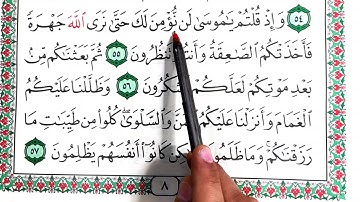 ٥٤ وَإِذْ قُلْتُمْ يَٰمُوسَىٰ لَن نُّؤْمِنَ لَكَ حَتَّىٰ نَرَى ٱللَّهَ جَهْرَةً
فَأَخَذَتْكُمُ ٱلصَّٰعِقَةُ وَأَنتُمْ تَنظُرُونَ ٥٥ ثُمَّ بَعَثْنَٰكُم مِّنۢ
بَعْدِ مَوْتِكُمْ لَعَلَّكُمْ تَشْكُرُونَ ٥٦ وَظَلَّلْنَا عَلَيْكُمُ
ٱلْغَمَامَ وَأَنزَلْنَا عَلَيْكُمُ ٱلْمَنَّ وَٱلسَّلْوَىٰ كُلُوا۟ مِن طَيِّبَٰتِ مَا
رَزَقْنَٰكُمْ وَمَا ظَلَمُونَا كَانُوٓا۟ أَنفُسَهُمْ يَظْلِمُونَ ٥٧
٨